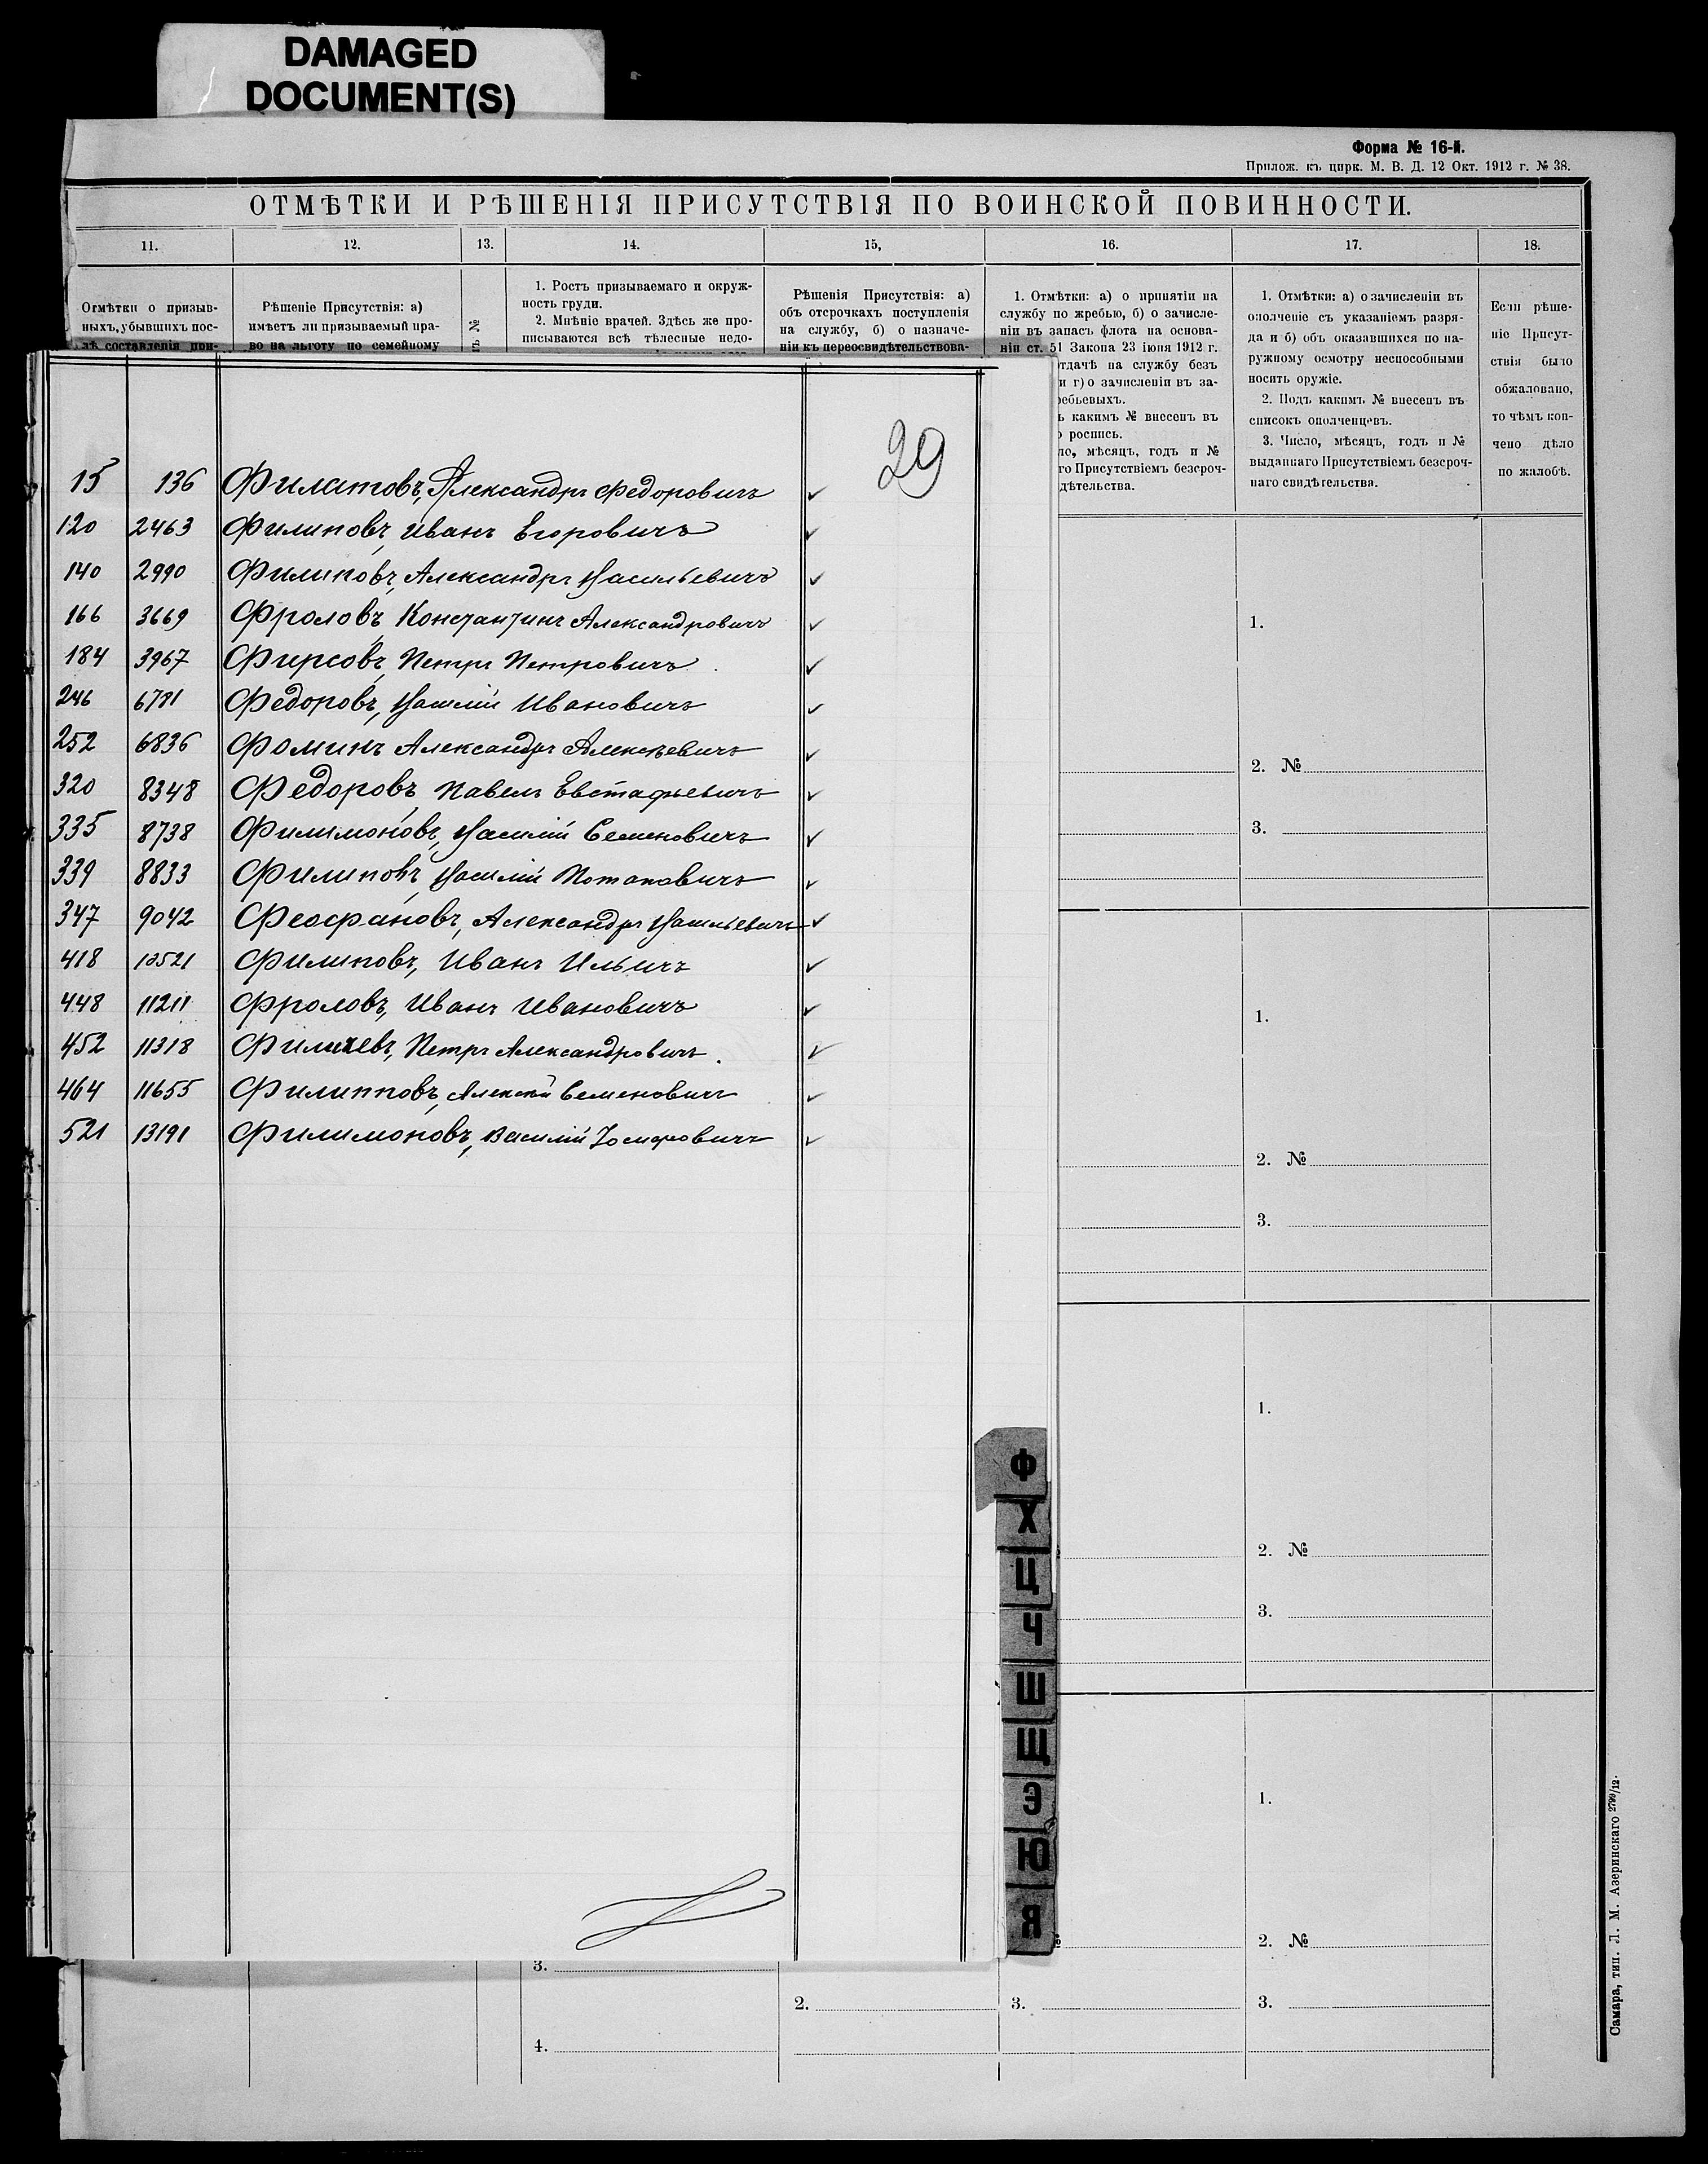 DAMAGED
DOCUMENT(S)
Форма № 16-й.
Прилож. къ цирк. М. В. Д. 12 Окт. 1912 г. № 38.
ОТМѢТКИ И РѢШЕНІЯ ПРИСУТСТВІЯ ПО ВОИНСКОЙ ПОВИННОСТИ.
11. 12. 13. 14. 15, 16. 17. 18.
Отмѣтки о призыв-
ныхъ, убывшихъ пос-
лѣ составленія при-
Рѣшеніе Присутствія: а)
имѣетъ ли призываемый пра-
во на льготу по семейному
№
1. Ростъ призываемаго и окруж-
ность груди.
2. Мнѣніе врачей. Здѣсь же про-
писываются всѣ тѣлесные недо-
Рѣшенія Присутствія: а)
объ отсрочкахъ поступленія
на службу, б) о назначе-
ніи къ переосвидѣтельствова-
1. Отмѣтки: а) о принятіи на
службу по жребью, б) о зачисле-
ніи въ запасъ флота на основа-
ніи ст. 51 Закона 23 іюня 1912 г.
тдачѣ на службу безъ
и г) о зачисленіи въ за-
ребьевыхъ.
ь какимъ № внесенъ въ
роспись.
ло, мѣсяцъ, годъ и №
го Присутствіемъ безсроч-
дѣтельства.
1. Отмѣтки: а) о зачисленіи въ
ополченіе съ указаніемъ разря-
да и б) объ оказавшихся по на-
ружному осмотру неспособными
носить оружіе.
2. Подъ какимъ № внесенъ въ
списокъ ополченцевъ.
3. Число, мѣсяцъ, годъ и №
выданнаго Присутствіемъ безсроч-
наго свидѣтельства.
Если рѣше-
ніе Присут-
ствія было
обжаловано,
то чѣмъ кон-
чено дѣло
по жалобѣ.
29
15 136 Филатовъ, Александръ Федоровичъ ✓
120 2463 Филиповъ, Иванъ Егоровичъ ✓
140 2990 Филиповъ, Александръ Васильевичъ ✓
166 3669 Фроловъ Константинъ Александровичъ ✓
184 3967 Фирсовъ, Петръ Петровичъ ✓
246 6781 Федоровъ, Василій Ивановичъ ✓
252 6836 Фоминъ Александръ Алексѣевичъ ✓
320 8348 Федоровъ, Павелъ Евстафьевичъ ✓
335 8738 Филимоновъ, Василій Семеновичъ ✓
339 8833 Филиповъ, Василій Потаповичъ ✓
347 9042 Феофановъ, Александръ Васильевичъ ✓
418 10521 Филиповъ, Иванъ Ильичъ ✓
448 11211 Фроловъ, Иванъ Ивановичъ ✓
452 11318 Филичевъ, Петръ Александровичъ. ✓
464 11655 Филипповъ, Алексѣй Семеновичъ ✓
521 13191 Филимоновъ, Василій ✓
Ф
Х
Ц
Ч
Ш
Щ
Э
Ю
Я
1.
2. №
3.
1.
2. №
3.
1.
2. №
3.
1.
2. №
3. 2. 3. 3.
4.
Самара, тип. Л. М. Азеринскаго 2799/12.